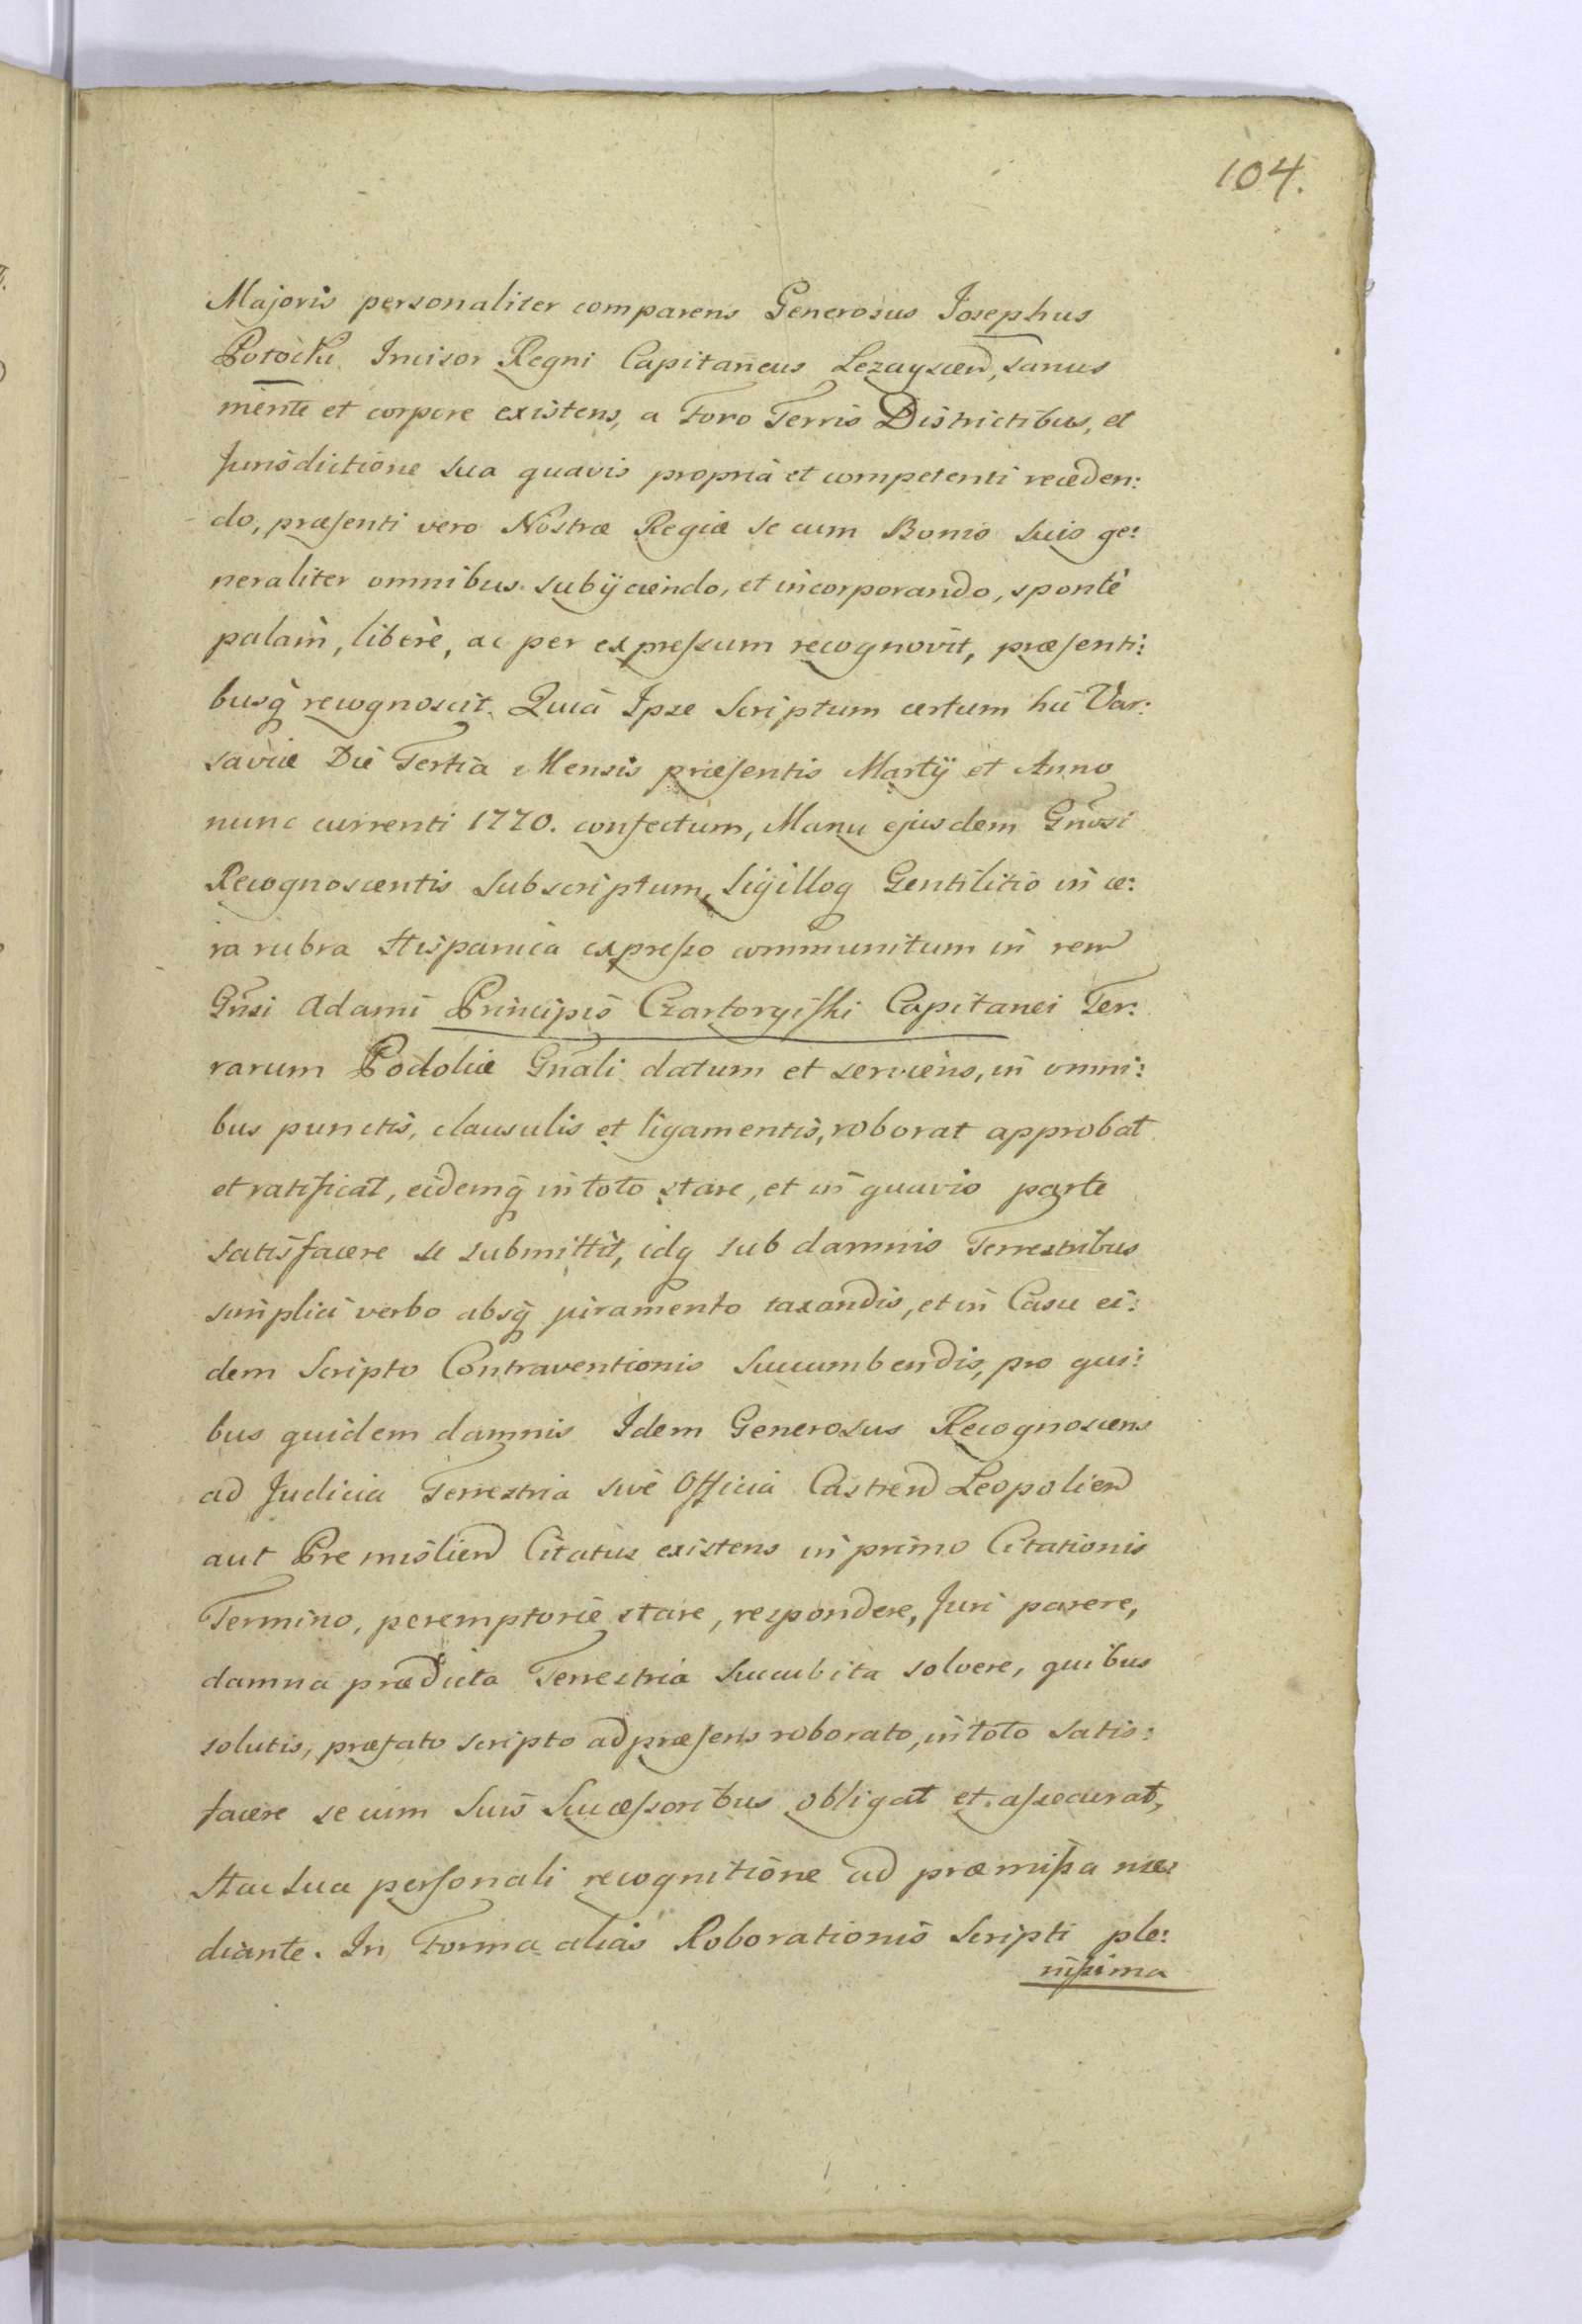 104.
Majoris personaliter comparens Generosus Josephus
Potocki Incisor Regni Capitaneus Lezayscen, sanus
mente et corpore existens, a Foro Terris Districtibus, et
Jurisdictione sua quavis propria et competenti receden:
do, præsenti vero Nostræ Regiæ se cum Bonis suis ge:
neraliter omnibus subijciendo, et incorporando, sponte
palam, libere, ac per expressum recognovit, præsenti:
busq recognoscit. Quia Ipse Scriptum certum hic Var:
saviæ Die Tertia Mensis præsentis Martij et Anno
nunc currenti 1770. confectum, Manu ejusdem Gnosi
Recognoscentis subscriptum, Sigilloq Gentilitio in ce:
ra rubra Hispanica expresso communitum in rem
Gnsi Adami Principis Czartoryiski Capitanei Ter:
rarum Podoliæ Gnali datum et serviens, in omni:
bus punctis, clausulis et ligamentis, roborat approbat
et ratificat, eidemq in toto stare, et in quavis parte
satisfacere se submittit, idq sub damnis Terrestribus
simplici verbo absq juramento taxandis, et in Casu ei:
dem Scripto Contraventionis Succumbendis, pro qui:
bus quidem damnis Idem Generosus Recognoscens
ad Judicia Terrestria sive Officia Castren Leopolien
aut Premislien Citatus existens in primo Citationis
Termino, peremptorie stare, respondere, Juri parere,
damna prædicta Terrestria Succubita solvere, quibus
solutis, præfato scripto ad præsens roborato, in toto satis:
facere se cum Suis Successoribus obligat et assecurat,
Hac sua personali recognitione ad præmissa me:
diante. In Forma alias Roborationis Scripti ple:
nissima